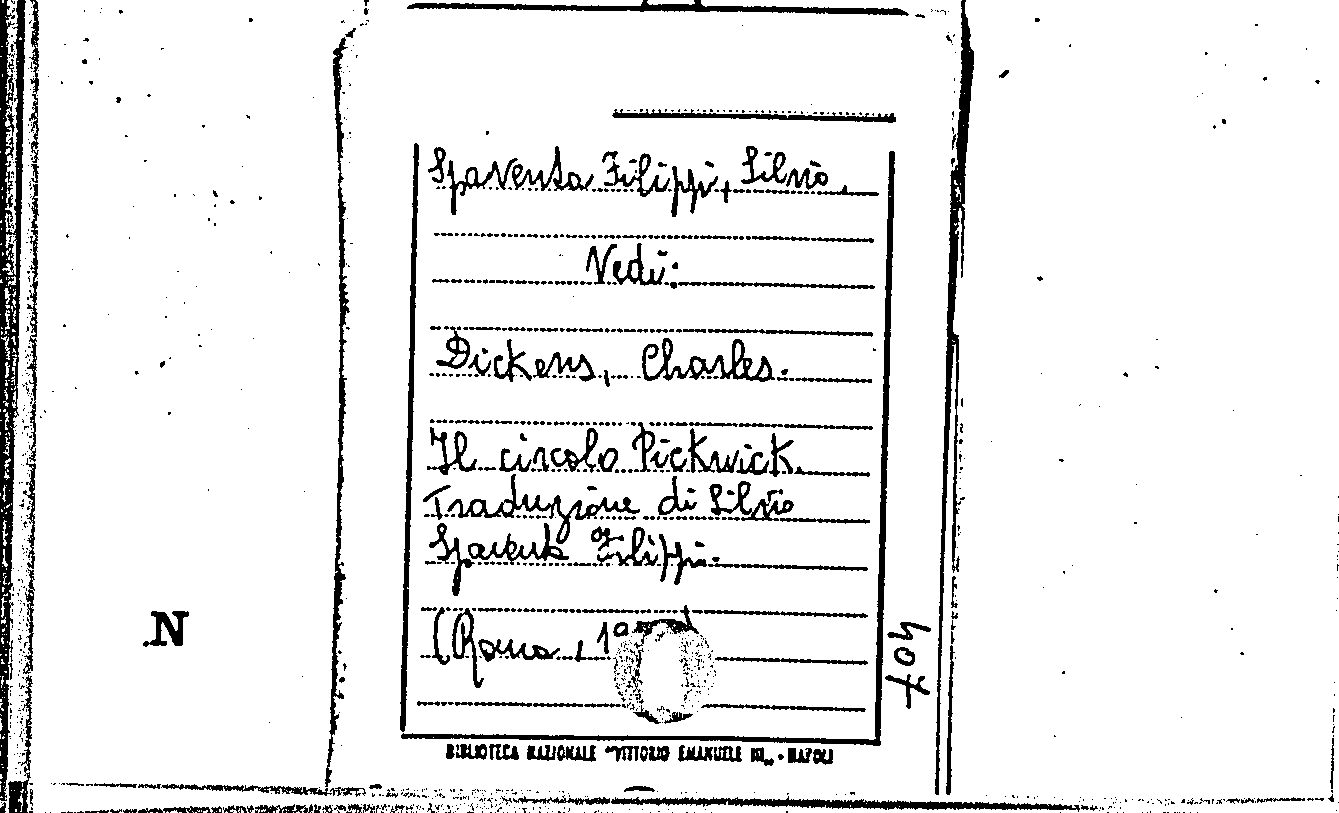 Spaventa Filippi, Silvio.
Vedi:
Dickens, Charles.
Il circolo Pickwick.
Traduzione di Silvio
Spaventa Filippi.
(Roma, 19
N
407
BIBLIOTECA NAZIONALE "VITTORIO EMANUELE III„ - NAPOLI